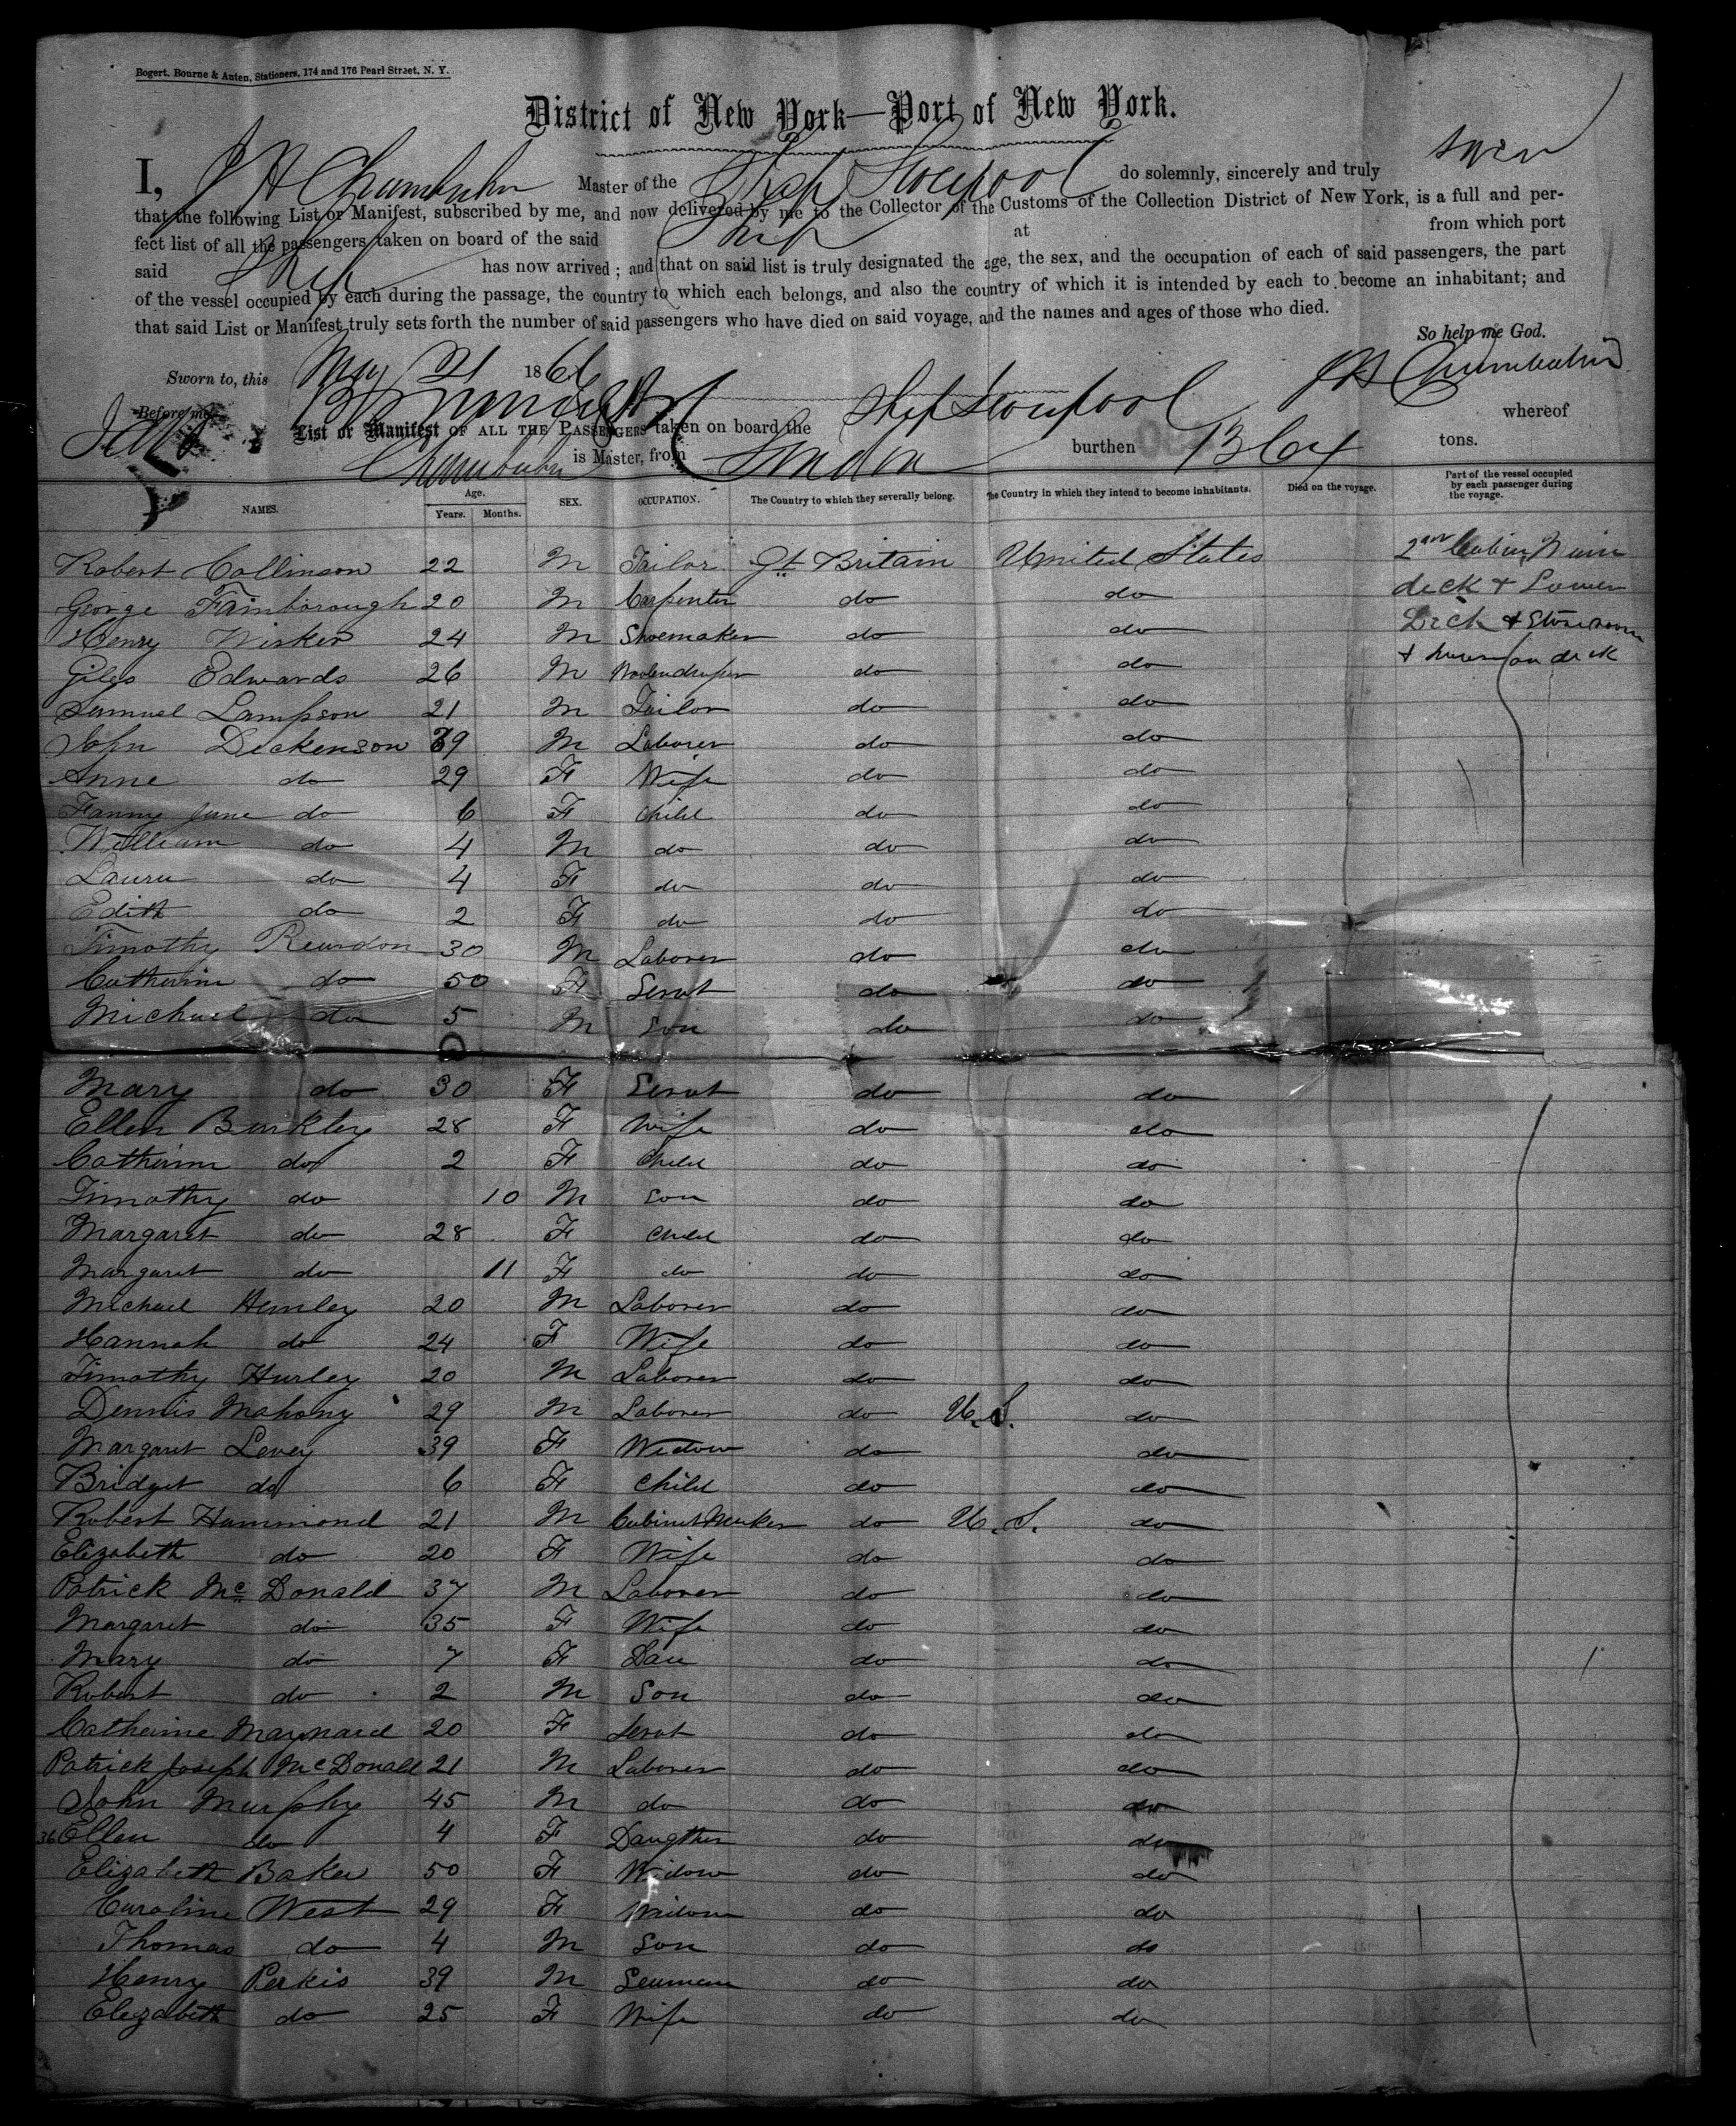 Bogert, Bourne & Auten, Stationers, 174 and 176 Pearl Street, N. Y.
District of New York—Port of New York.
I, J H Chamberlin Master of the Ship Liverpool do solemnly, sincerely and truly swear
that the following List or Manifest, subscribed by me, and now delivered by me to the Collector of the Customs of the Collection District of New York, is a full and per-
fect list of all the passengers taken on board of the said Ship at from which port
said Ship has now arrived; and that on said list is truly designated the age, the sex, and the occupation of each of said passengers, the part
of the vessel occupied by each during the passage, the country to which each belongs, and also the country of which it is intended by each to become an inhabitant; and
that said List or Manifest truly sets forth the number of said passengers who have died on said voyage, and the names and ages of those who died.
So help me God.
Sworn to, this May 21 186 J H Chamberlin
Before me,
List or Manifest OF ALL THE PASSENGERS taken on board the Ship Liverpool whereof
is Master, from London burthen 1364 tons.
NAMES. Age. Years. Months. SEX. OCCUPATION. The Country to which they severally belong. The Country in which they intend to become inhabitants. Died on the voyage. Part of the vessel occupied by each passenger during the voyage.
Robert Collinson 22 M Tailor Gt Britain United States 2nd Cabin Main
George Farnborough 20 M Carpenter do do deck & Lower
Henry Wisker 24 M Shoemaker do do Deck & Storeroom
Giles Edwards 26 M Woolendraper do do & house on deck
Samuel Lampson 21 M Tailor do do
John Dickenson 39 M Laborer do do
Anne do 29 F Wife do do
Fanny Jane do 6 F Child do do
William do 4 M do do do
Laura do 4 F do do do
Edith do 2 F do do do
Timothy Reardon 30 M Laborer do do
Catherine do 50 F Servt do do
Michael do 5 M Son do do
Mary do 30 F Servt do do
Ellen Barkley 28 F Wife do do
Catherine do 2 F Child do do
Timothy do 10 M Son do do
Margaret do 28 F Child do do
Margaret do 11 F do do do
Michael Hurley 20 M Laborer do do
Hannah do 24 F Wife do do
Timothy Hurley 20 M Laborer do do
Dennis Mahony 29 M Laborer do U. S. do
Margaret Levey 39 F Widow do do
Bridget do 6 F Child do do
Robert Hammond 21 M Cabinet Maker do U. S. do
Elizabeth do 20 F Wife do do
Patrick Mc Donald 37 M Laborer do do
Margaret do 35 F Wife do do
Mary do 7 F Dau do do
Robert do 2 M Son do do
Catherine Maynard 20 F Servt do do
Patrick Joseph McDonald 21 M Laborer do do
John Murphy 45 M do do do
36 Ellen do 4 F Daugther do do
Elizabeth Baker 50 F Widow do do
Caroline West 29 F Widow do do
Thomas do 4 M Son do do
Henry Perkis 39 M Seaman do do
Elizabeth do 25 F Wife do do